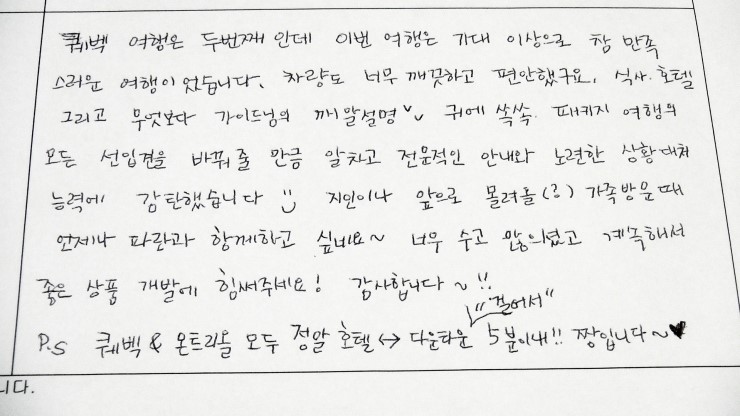 퀘벡 여행은 두번째 인데 이번 여행은 기대 이상으로 참 만족
스러운 여행이 었습니다. 차량도 너무 깨끗하고 편안했구요, 식사, 호텔
그리고 무엇보다 가이드님의 깨알설명 귀에 쏙쏙. 패키지 여행의
모든 선입견을 바꿔줄 만큼 알차고 전문적인 안내와 노련한 상황대처
능력에 감탄했습니다 지인이나 앞으로 몰려올(ㅋ) 가족방문때
언제나 파란과 함께하고 싶네요~ 너무 수고 많으셨고 계속해서
좋은 상품 개발에 힘써주세요! 감사합니다~!!
"걸어서"
P.S 퀘벡 & 몬트리올 모두 정말 호텔↔다운타운 5분이내!! 짱입니다~♥
니다.